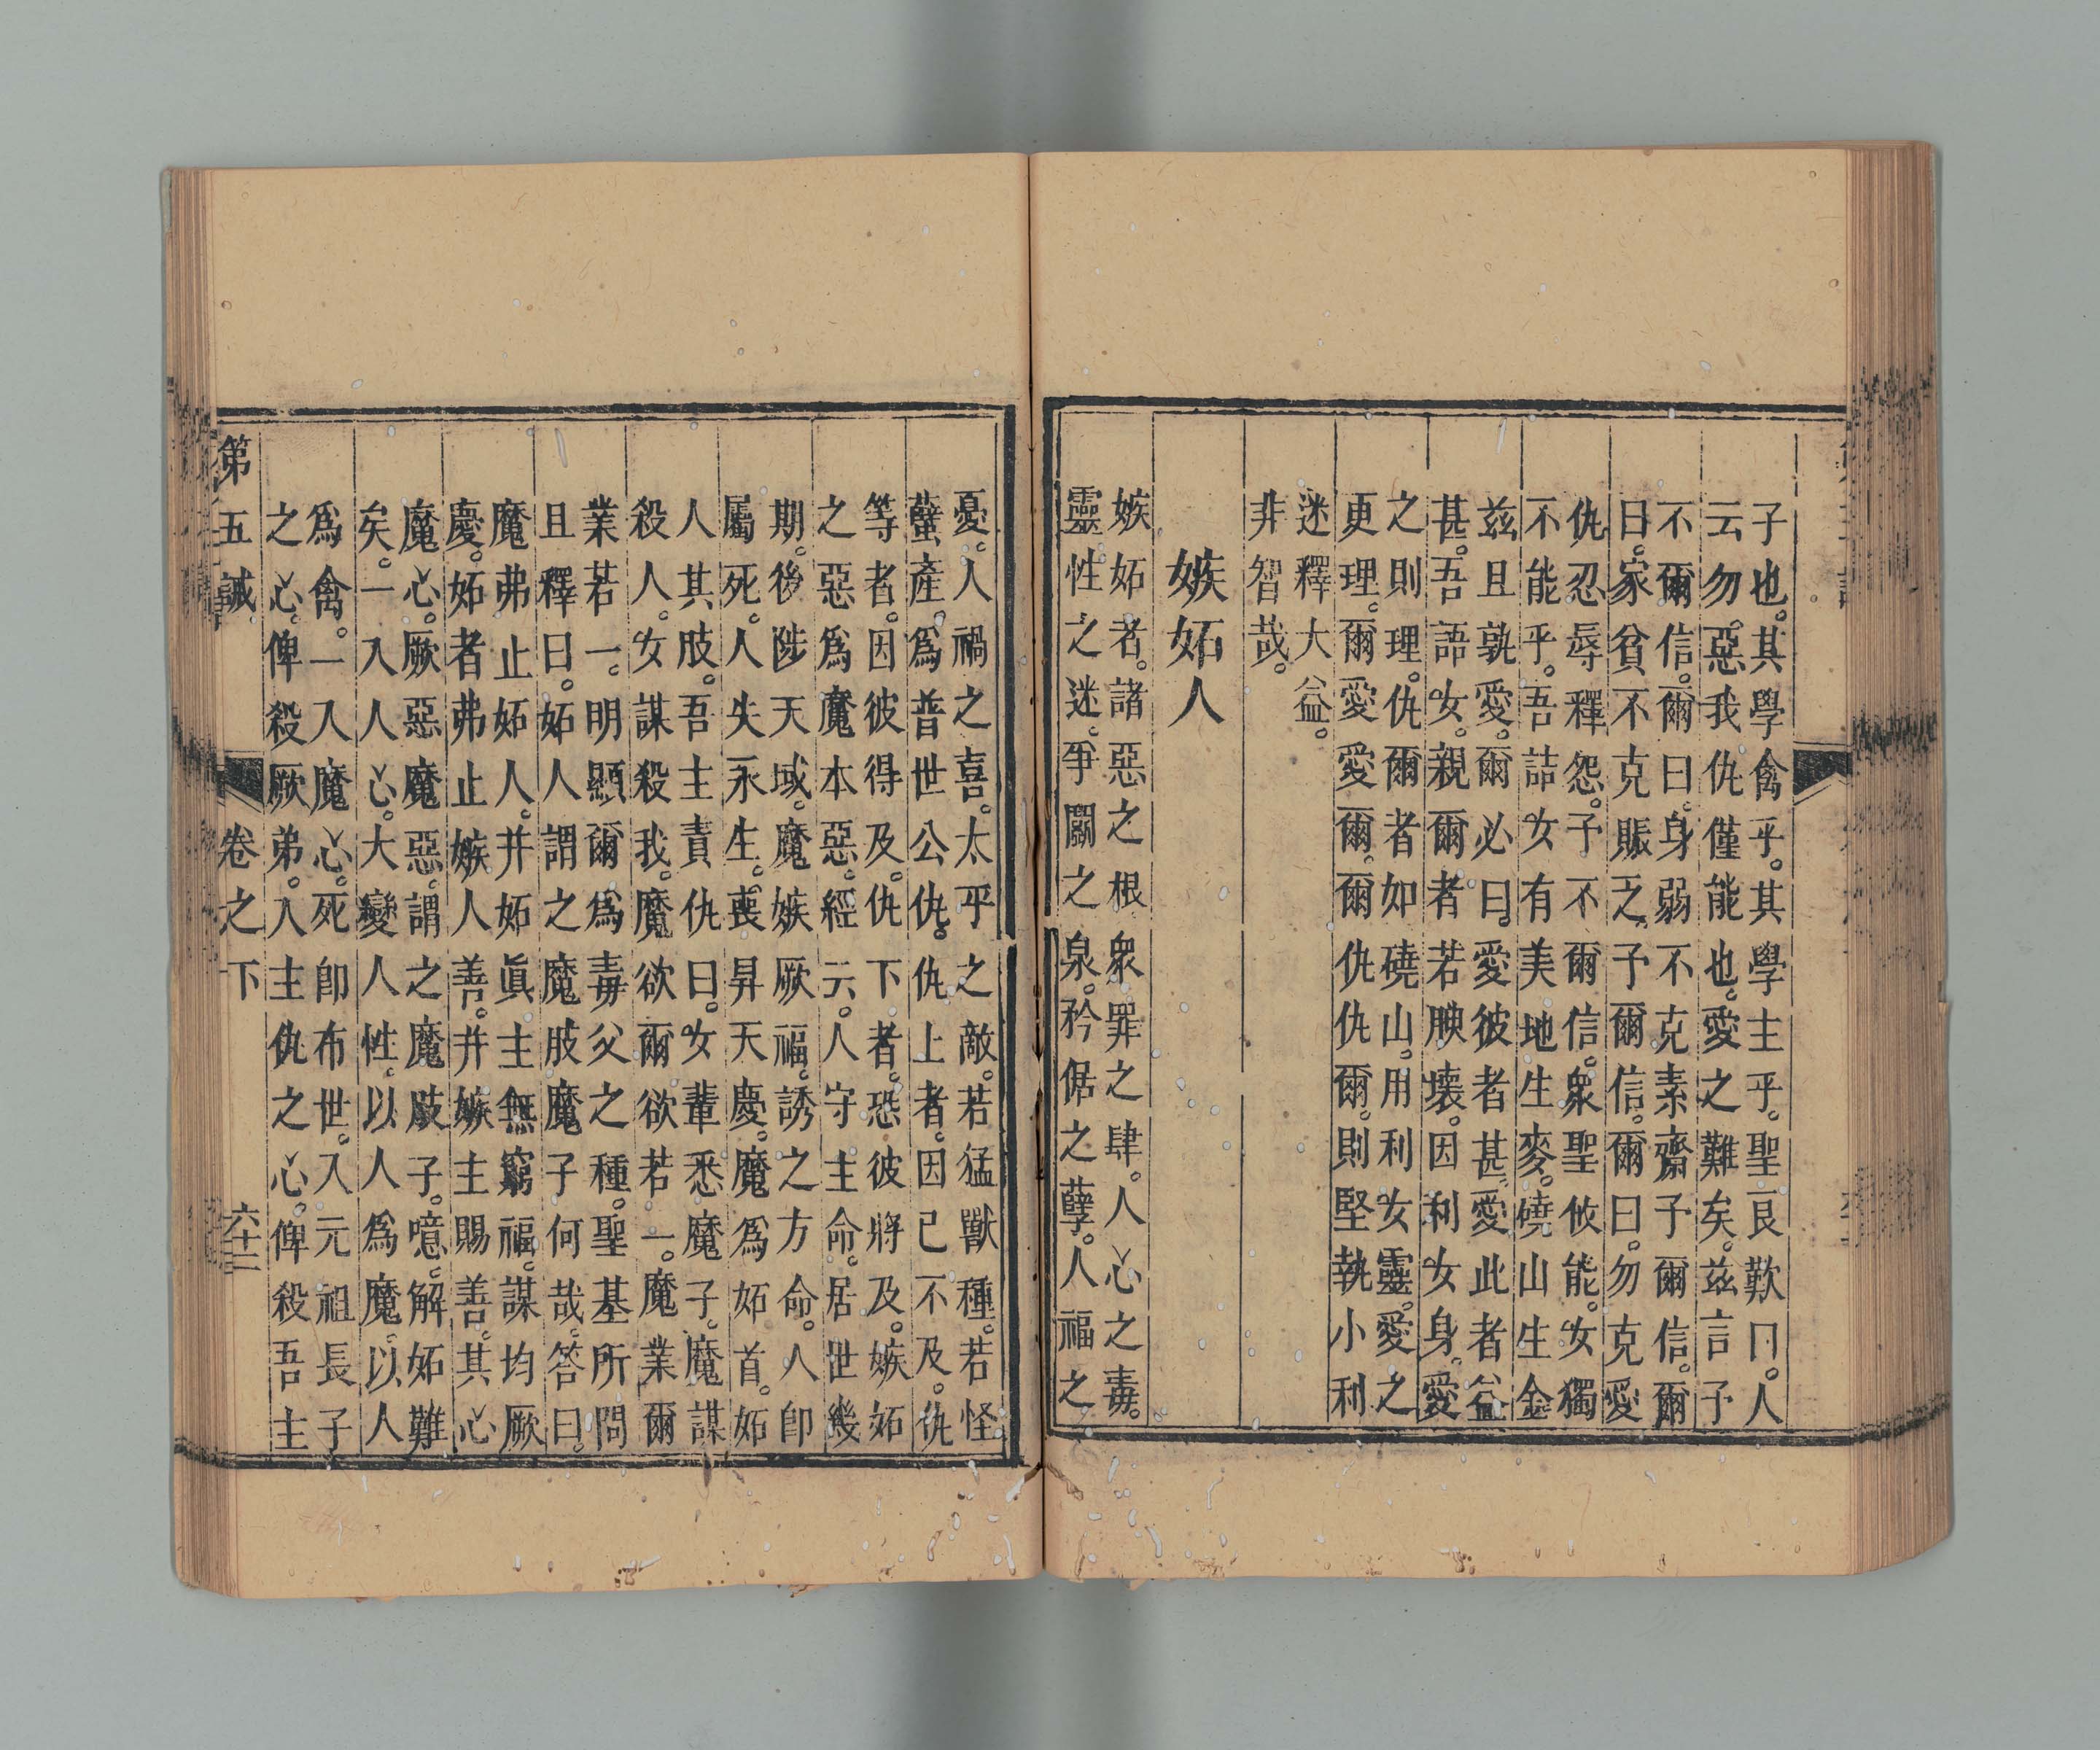 子也。其學禽乎。其學主乎。聖艮歎曰。人
云勿惡我仇僅能也。愛之難矣。茲言予
不爾信。爾曰。身弱不克素齋予爾信。爾
曰。家貧不克賑乏。予爾信。爾曰。勿克愛
仇忍辱釋怨。予不爾信。衆聖攸能。女獨
不能乎。吾詰女有美地生麥。磽山生金
茲且孰愛。爾必曰。愛彼者甚。愛此者益
甚。吾語女。親爾者若腴壤。因利女身。愛
之則理。仇爾者如磽山。用利女靈。愛之
更理。爾愛愛爾。爾仇仇爾。則堅執小利
迷釋大益。
非智哉。
嫉妬人
嫉妬者。諸惡之根衆罪之肆。人心之毒。
靈性之迷。爭鬭之泉。矜倨之孽。人福之
憂。人禍之喜。太平之敵。若猛獸種。若怪
蠥產。為普世公仇。仇上者。因己不及。仇
等者。因彼得及。仇下者。恐彼將及。嫉妬
之惡為魔本惡。經云。人守主命。居世幾
期。後陟天域。魔嫉厥福。誘之方命。人即
屬死。人失永生。喪昇天慶。魔為妬首。妬
人其肢。吾主責仇曰。女輩悉魔子。魔謀
殺人。女謀殺我。魔欲爾欲若一。魔業爾
業若一。明顯爾為毒父之種。聖基所問
且釋曰。妬人謂之魔肢魔子何哉。答曰。
魔弗止妬人。并妬眞主無窮福。謀均厥
慶。妬者弗止嫉人善。并嫉主賜善。其心
魔心。厥惡魔惡。謂之魔肢子。噫。解妬難
矣。一入人心。大變人性。以人為魔。以人
為禽。一入魔心。死即布世。入元祖長子
之心。俾殺厥弟。入主仇之心。俾殺吾主
第五誡 卷之下 六十二